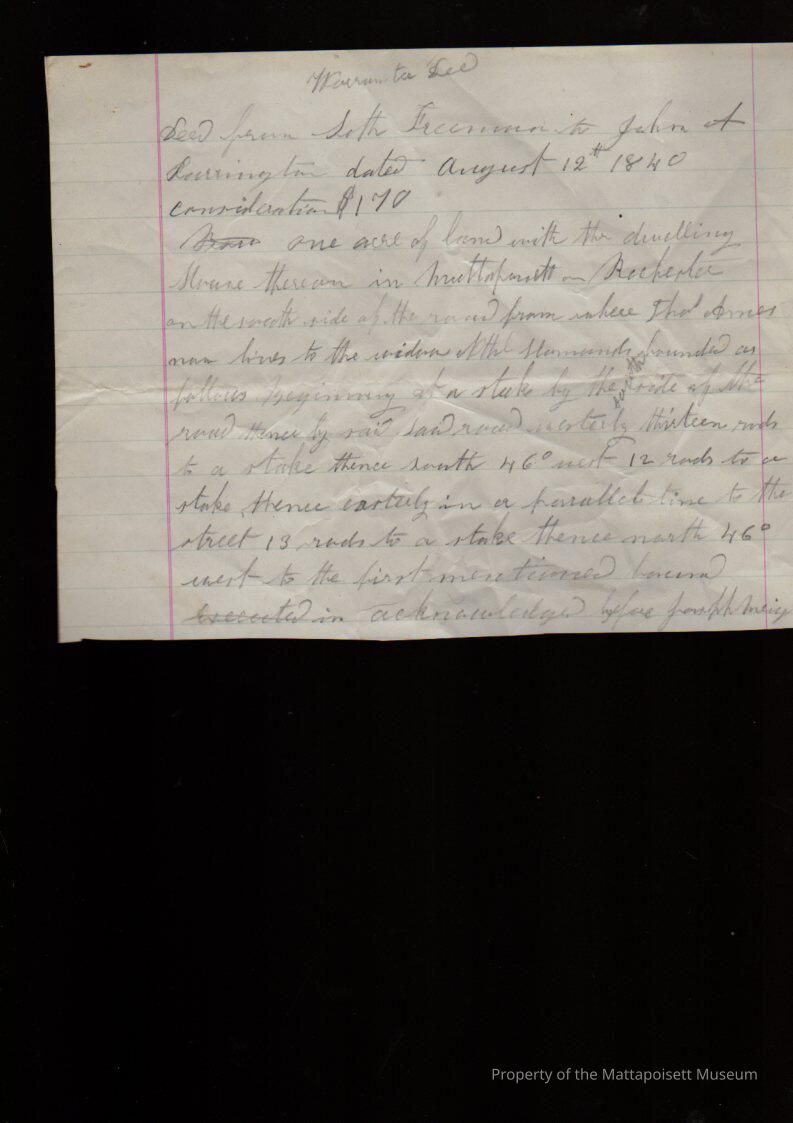 Warrantee Deed
Deed from Seth Freeman to John A
Purrington dated August 12th 1840
consideration $170
one acre of land with the dwelling
House thereon in Mattapoisett in Rochester
on the south side of the road from where Thos Ames
now lives to the widow of the Hammonds bounded as
follows beginning at a stake by the south side of the
road thence by said road westerly thirteen rods
to a stake thence south 46° west 12 rods to a
stake thence easterly in a parallel line to the
street 13 rods to a stake thence north 46°
west to the first mentioned bound
executed in acknowledged before Joseph Meig
Property of the Mattapoisett Museum